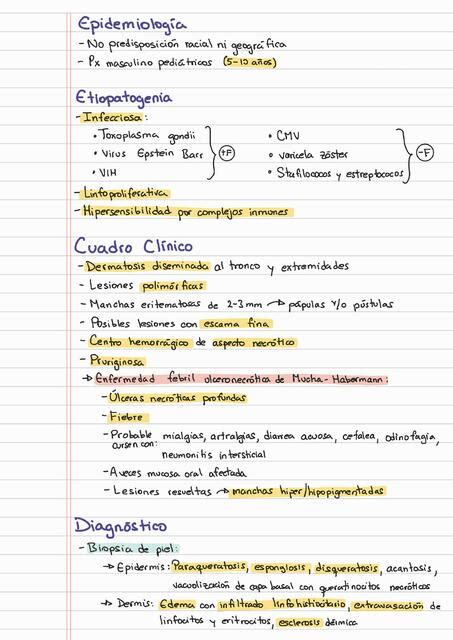 Epidemiología
- No predisposición racial ni geográfica
- Px masculino pediátricos (5-10 años)
Etiopatogenia
- Infecciosa:
• Toxoplasma gondii
• Virus Epstein Barr
• VIH
+F
• CMV
• varicela zóster
• Stafilococos y estreptococos
-F
- Linfoproliferativa
- Hipersensibilidad por complejos inmunes
Cuadro Clínico
- Dermatosis diseminada al tronco y extremidades
- Lesiones polimórficas
- Manchas eritematosas de 2-3 mm → pápulas y/o pústulas
- Posibles lesiones con escama fina
- Centro hemorrágico de aspecto necrótico
- Pruriginosa
→ Enfermedad febril ulceronecrótica de Mucha-Habermann:
- Úlceras necróticas profundas
- Fiebre
- Probable mialgias, artralgias, diarrea acuosa, cefalea, odinofagia,
cursen con: neumonitis intersticial
- A veces mucosa oral afectada
- Lesiones resueltas → manchas hiper/hipopigmentadas
Diagnóstico
- Biopsia de piel:
→ Epidermis: Paraqueratosis, espongiosis, disqueratosis, acantosis,
vacuolización de capa basal con queratinocitos necróticos
→ Dermis: Edema con infiltrado linfohistiocitario, extravasación de
linfocitos y eritrocitos, esclerosis dérmica